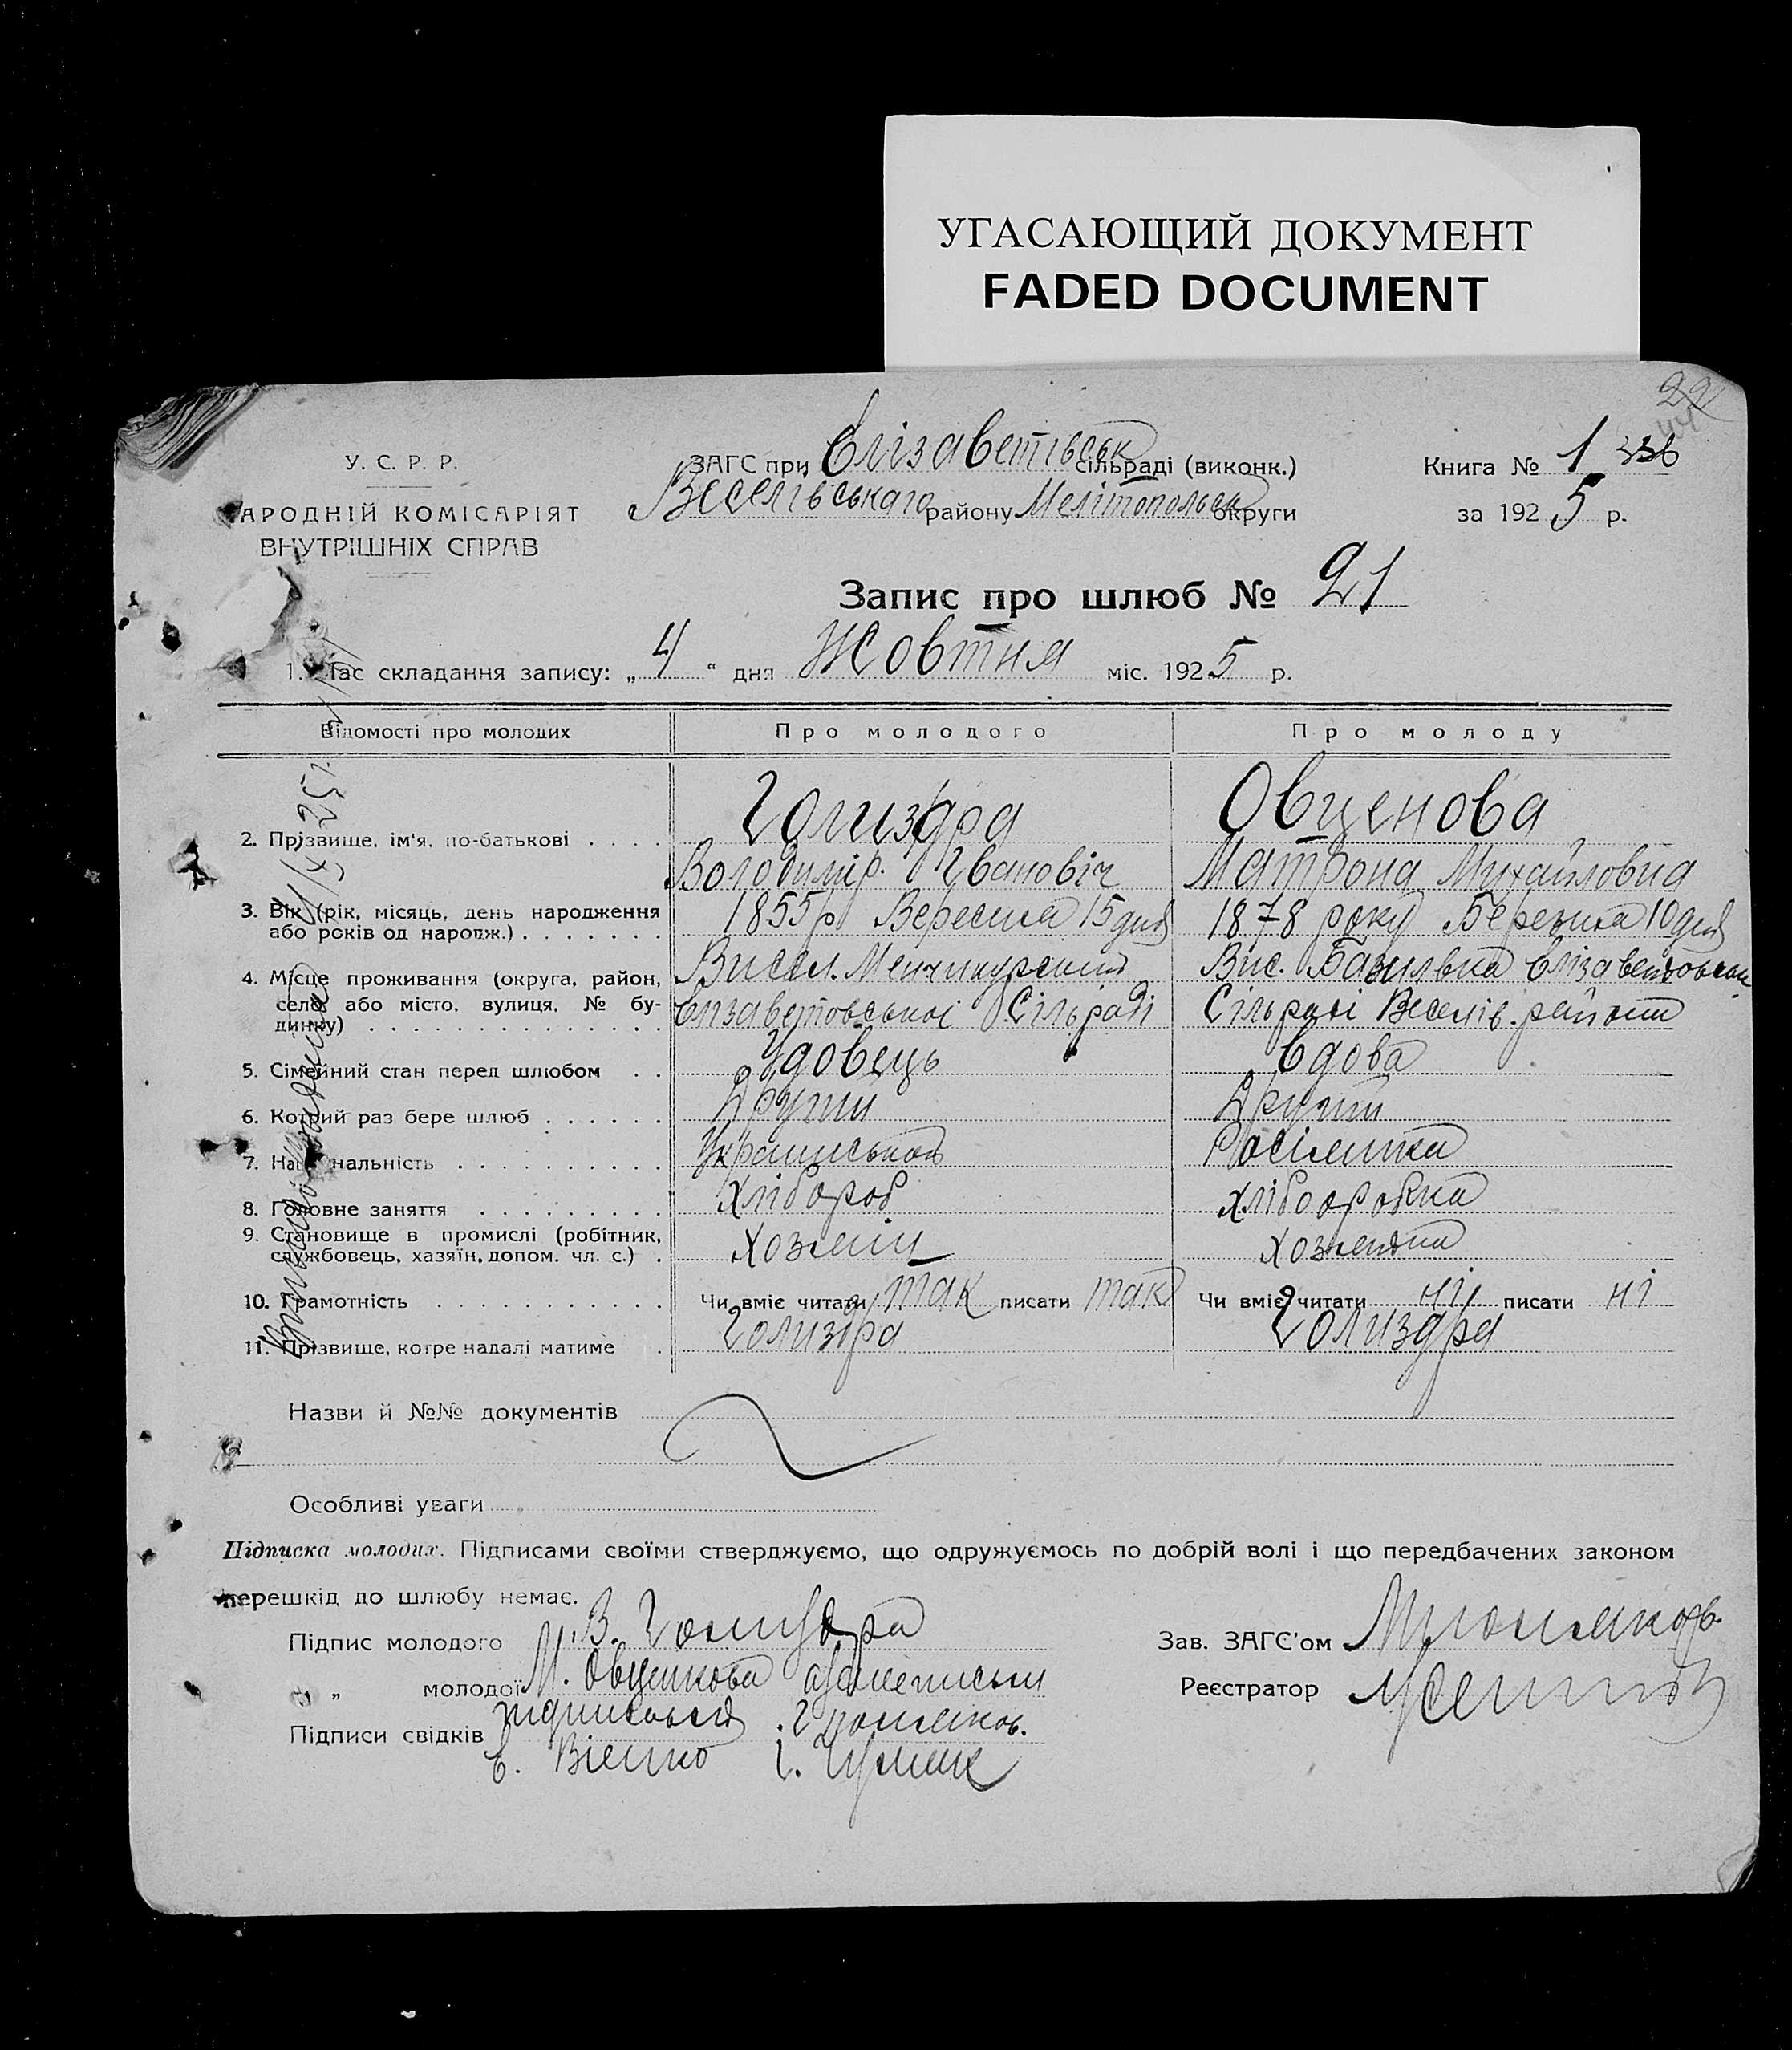 УГАСАЮЩИЙ ДОКУМЕНТ
FADED DOCUMENT
22
У. С. Р. Р.
АРОДНІЙ КОМІСАРІЯТ
ВНУТРІШНІХ СПРАВ
ЗАГС при Єлізаветівськ сільраді (виконк.)
Веселівськаго району Мелітопольск округи
Книга № 1
за 1925 р.
Запис про шлюб № 21
1. Час складання запису: „ 4 “ дня Жовтня міс. 1925 р.
Відомості про молодих Про молодого Про молоду
2. Прізвище, ім'я, по-батькові . . . . Голиздра Овценова
Володимір. Івановіч Матрона Михайловна
3. Вік (рік, місяць, день народження 1855 р Вересня 15 дня 1878 року Березня 10 дня
або років од народж.) . . . . . . .
4. Місце проживання (округа, район, Висел. Менчикурский Вис. Базилвка Єлізаветовскои
село або місто, вулиця, № бу- Єлізаветовськоі Сільради Сільради Веселів. району
динку) . . . . . . . . . . . . . .
5. Сімейний стан перед шлюбом . . Удовець вдова
6. Котрий раз бере шлюб . . . . . . Другий Другий
7. Нац нальність . . . . . . . . . . Украінськой Росіянка
8. Головне заняття . . . . . . . . . Хлібороб Хлібооробка
9. Становище в промислі (робітник,
службовець, хазяїн, допом. чл. с.) . Хозяин Хозяйка
10. Грамотність . . . . . . . . . . . Чи вміє читати так писати так Чи вміє читати ні писати ні
11. Прізвище, котре надалі матиме . Голиздра Голиздра
Назви й №№ документів
Особливі уваги
Підписка молодих. Підписами своїми стверджуємо, що одружуємось по добрій волі і що передбачених законом
перешкід до шлюбу немає.
Підпис молодого В. Голиздра
Зав. ЗАГС'ом
„ „ молодої М. Овценкова
Реєстратор
Підписи свідків